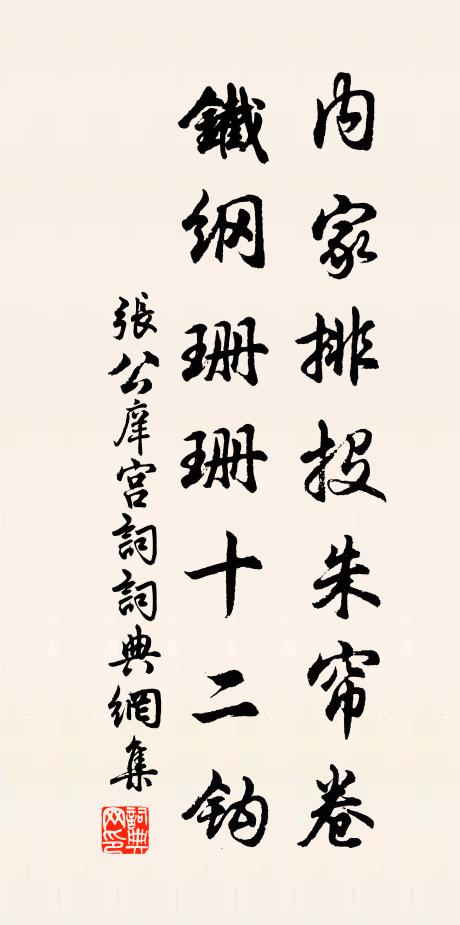 内家排投朱帘卷
鐵網珊珊十二鈎
張公庠宫詞詞典網集
詞典网印